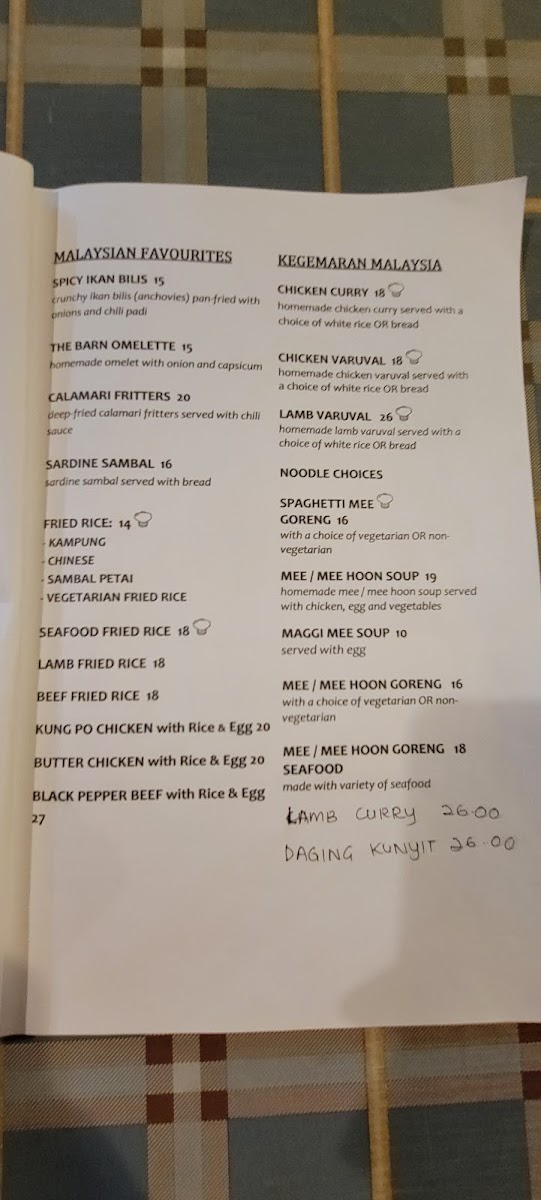 MALAYSIAN FAVOURITES
SPICY IKAN BILIS 15
crunchy ikan bilis (anchovies) pan-fried with
onions and chili padi
THE BARN OMELETTE 15
homemade omelet with onion and capsicum
CALAMARI FRITTERS 20
deep-fried calamari fritters served with chili
sauce
SARDINE SAMBAL 16
sardine sambal served with bread
FRIED RICE: 14
- KAMPUNG
- CHINESE
- SAMBAL PETAI
- VEGETARIAN FRIED RICE
SEAFOOD FRIED RICE 18
LAMB FRIED RICE 18
BEEF FRIED RICE 18
KUNG PO CHICKEN with Rice & Egg 20
BUTTER CHICKEN with Rice & Egg 20
BLACK PEPPER BEEF with Rice & Egg
27
KEGEMARAN MALAYSIA
CHICKEN CURRY 18
homemade chicken curry served with a
choice of white rice OR bread
CHICKEN VARUVAL 18
homemade chicken varuval served with
a choice of white rice OR bread
LAMB VARUVAL 26
homemade lamb varuval served with a
choice of white rice OR bread
NOODLE CHOICES
SPAGHETTI MEE
GORENG 16
with a choice of vegetarian OR non-
vegetarian
MEE / MEE HOON SOUP 19
homemade mee / mee hoon soup served
with chicken, egg and vegetables
MAGGI MEE SOUP 10
served with egg
MEE / MEE HOON GORENG 16
with a choice of vegetarian OR non-
vegetarian
MEE / MEE HOON GORENG 18
SEAFOOD
made with variety of seafood
LAMB CURRY 26.00
DAGING KUNYIT 26.00